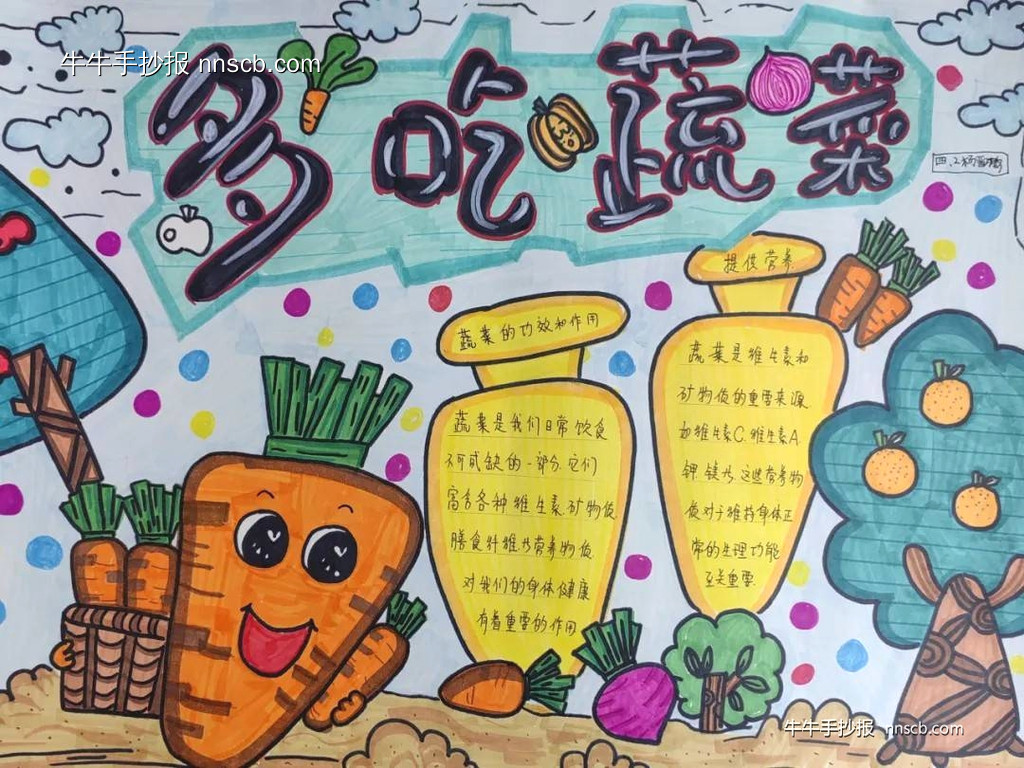 牛牛手抄报 nnscb.com
多吃蔬菜
四.2
蔬菜的功效和作用
蔬菜是我们日常饮食
不可或缺的一部分.它们
富含各种维生素.矿物质
膳食纤维等营养物质
对我们的身体健康
有着重要的作用
提供营养
蔬菜是维生素和
矿物质的重要来源
如维生素C.维生素A.
钾.镁等.这些营养物
质对于维持身体正
常的生理功能
至关重要.
牛牛手抄报 nnscb.com